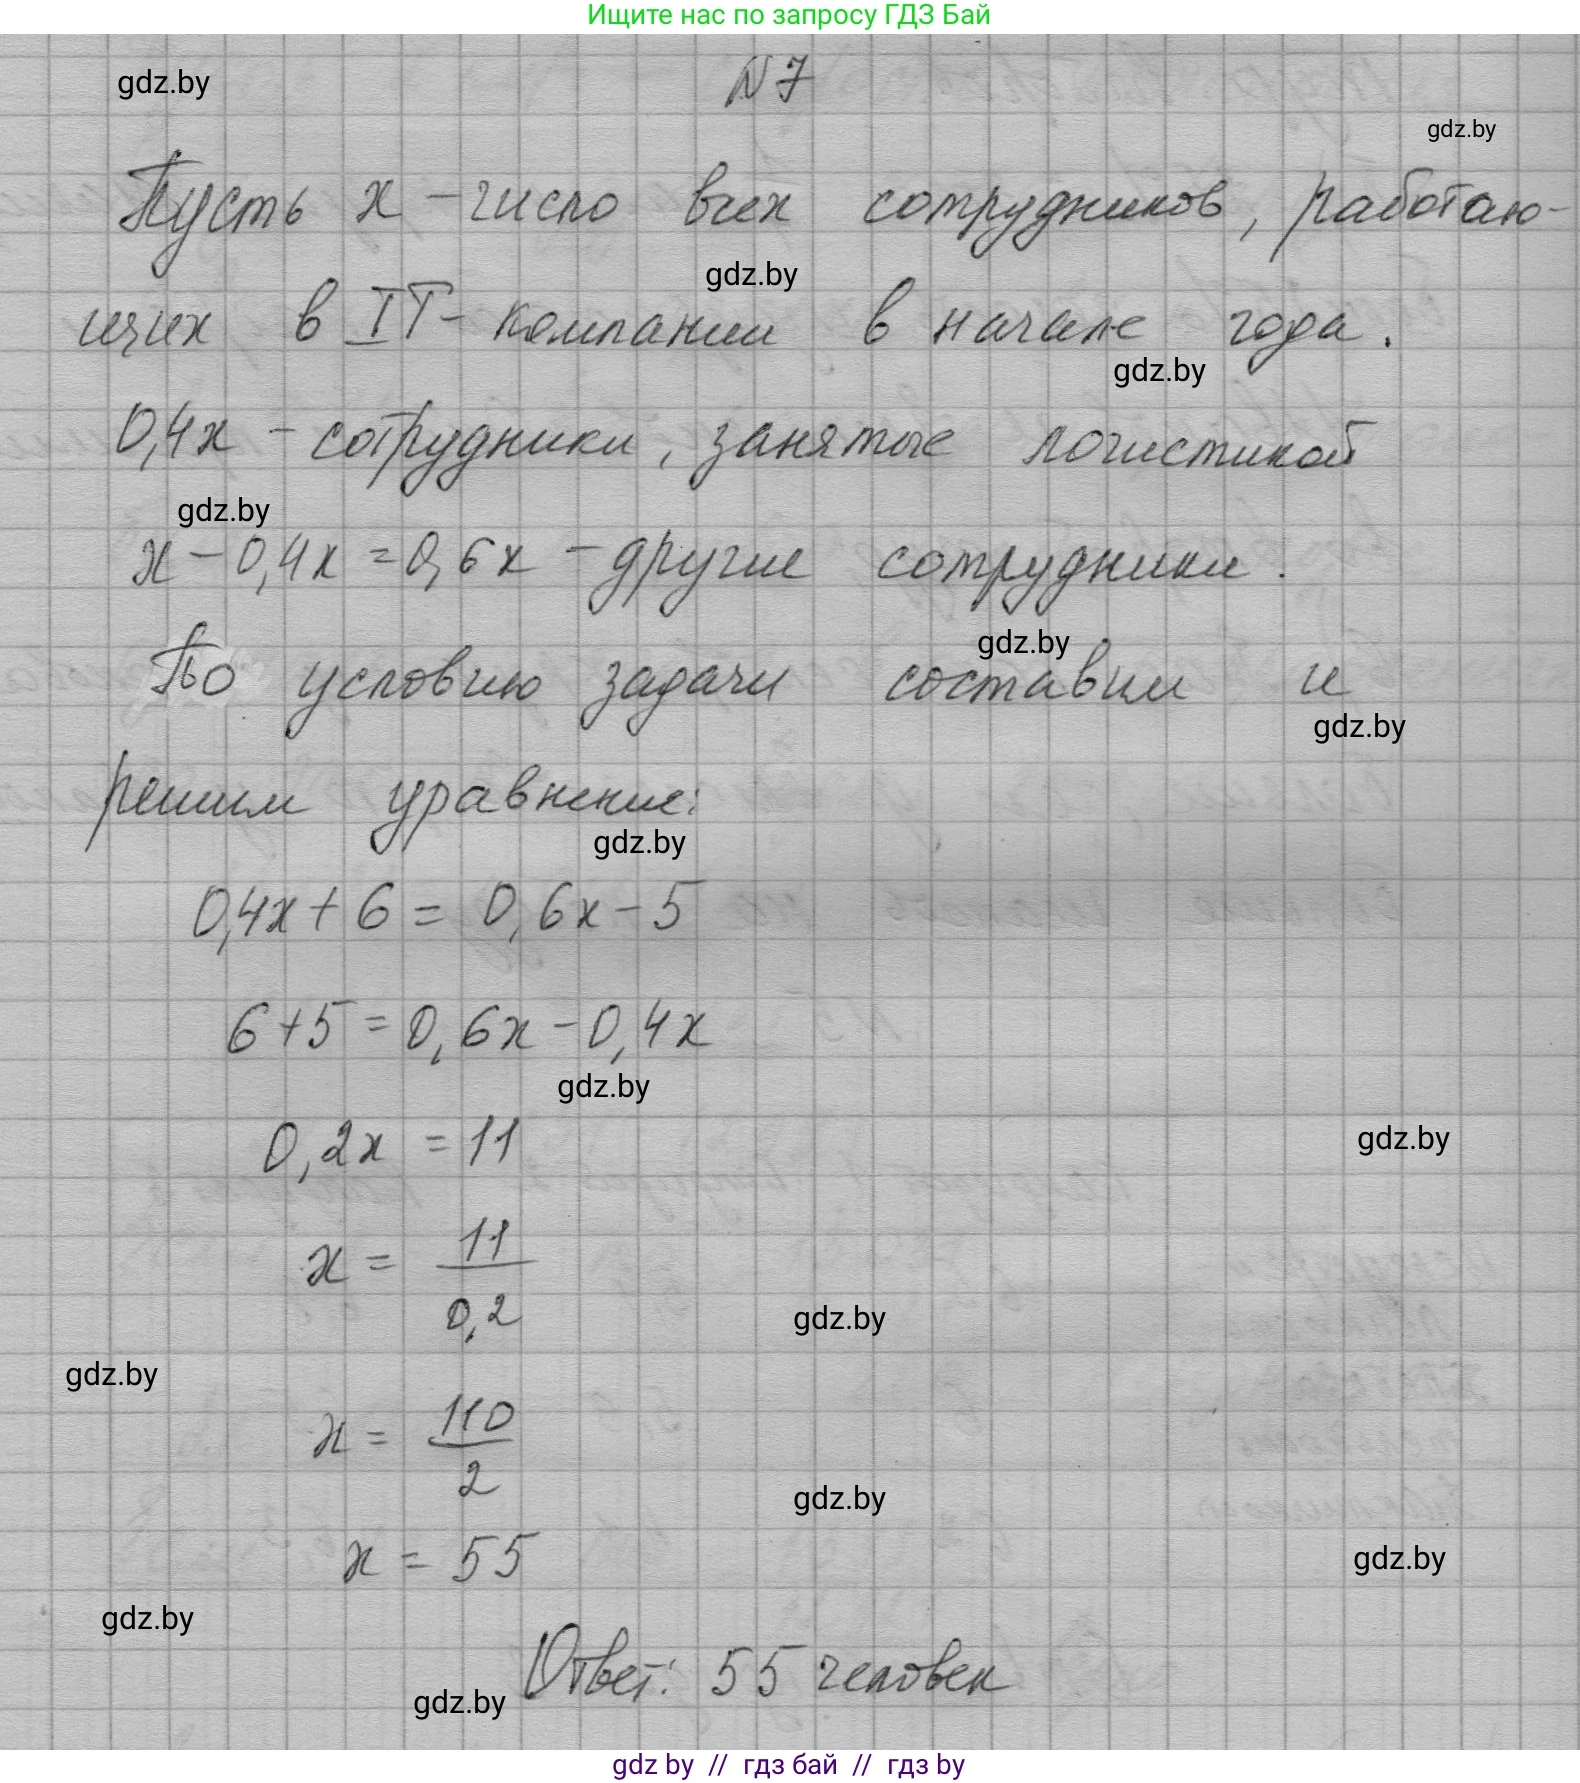 Ищите нас по запросу ГДЗ Бай
gdz.by
N7
gdz.by
Пусть x - число всех сотрудников, работаю-
щих в IT- компании в начале года.
gdz.by
gdz.by
0,4x - сотрудники, занятые логистикой
gdz.by
x - 0,4x = 0,6x - другие сотрудники.
gdz.by
По условию задачи составим и
gdz.by
решим уравнение:
gdz.by
0,4x + 6 = 0,6x - 5
6 + 5 = 0,6x - 0,4x
gdz.by
0,2x = 11
gdz.by
x = 11/0,2
gdz.by
gdz.by
x = 110/2
gdz.by
x = 55
gdz.by
gdz.by
Ответ: 55 человек
gdz.by
gdz by // гдз бай // гдз by